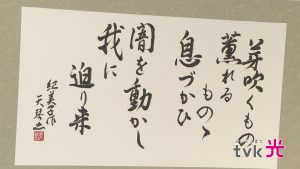 芽吹くもの
薫れる
ものゝ
息づかひ
闇を動かし
我に
迫り来
紀美子作
tvk光